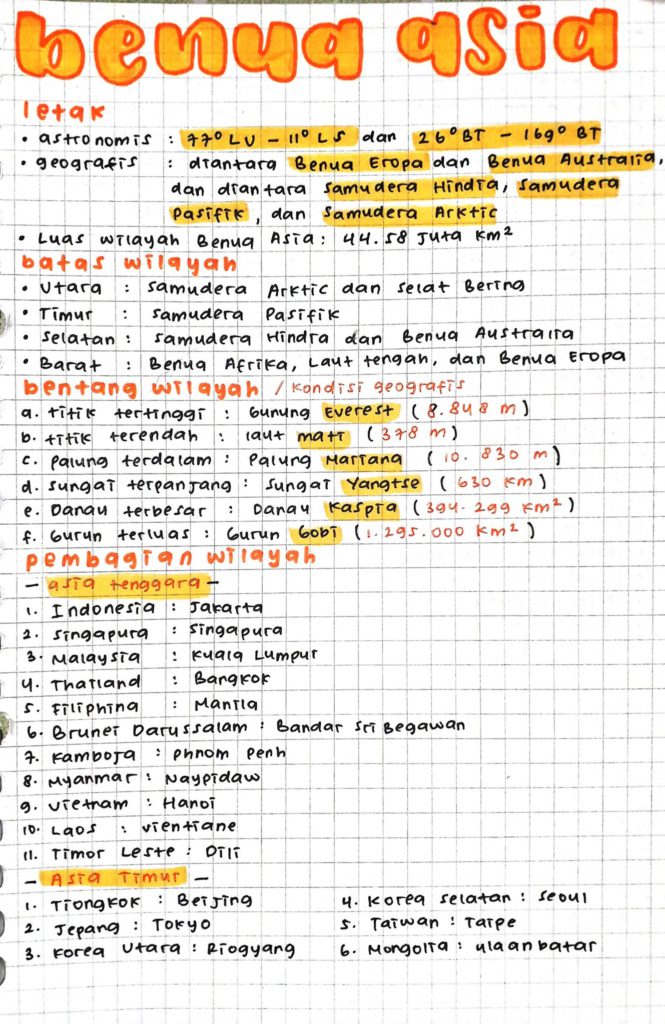 benua asia
letak
• astronomis : 77° LU - 11° LS dan 26° BT - 169° BT
• geografis : diantara Benua Eropa dan Benua Australia,
dan diantara Samudera Hindia, Samudera
Pasifik, dan Samudera Arktic
• Luas wilayah Benua Asia: 44.58 Juta Km²
batas wilayah
• Utara : Samudera Arktic dan Selat Bering
• Timur : Samudera Pasifik
• Selatan : Samudera Hindia dan Benua Australia
• Barat : Benua Afrika, Laut tengah, dan Benua Eropa
bentang wilayah / Kondisi geografis
a. titik tertinggi : Gunung Everest (8.848 m)
b. titik terendah : laut mati (378 m)
c. palung terdalam : Palung Mariana (10.830 m)
d. sungai terpanjang : sungai Yangtse (630 km)
e. Danau terbesar : Danau Kaspia (394.299 km²)
f. Gurun terluas : Gurun Gobi (1.295.000 Km²)
pembagian wilayah
- asia tenggara -
1. Indonesia : Jakarta
2. Singapura : Singapura
3. Malaysia : Kuala Lumpur
4. Thailand : Bangkok
5. Filiphina : Manila
6. Brunei Darussalam : Bandar Sri Begawan
7. Kamboja : phnom penh
8. Myanmar : Naypidaw
9. Vietnam : Hanoi
10. Laos : Vientiane
11. Timor Leste : Dili
- Asia Timur -
1. Tiongkok : Beijing
2. Jepang : Tokyo
3. Korea Utara : Piogyang
4. Korea selatan : Seoul
5. Taiwan : Taipe
6. Mongolia : ulaanbatar